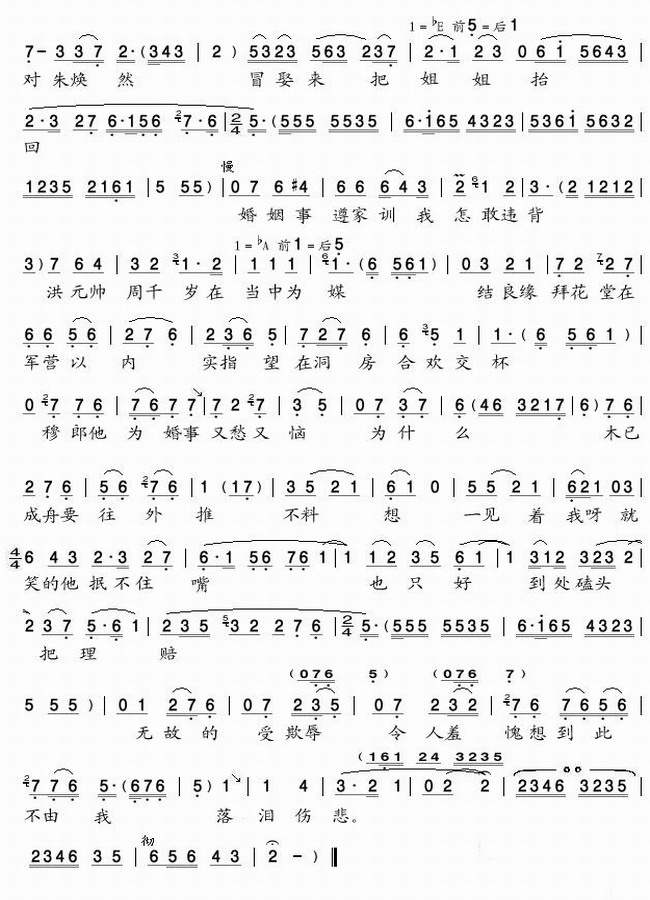 1=♭E 前5=后1
7- 3 3 7 2·(3 4 3 | 2 ) 5 3 2 3 5 6 3 2 3 7 | 2·1 2 3 0 6 i 5 6 4 3 |
对 朱 焕 然 冒 娶 来 把 姐 姐 抬
2·3 2 7 6·1 5 6 7·6 | 2/4 5·(5 5 5 5 5 3 5 | 6·i 6 5 4 3 2 3 | 5 3 6 i 5 6 3 2 |
回
慢
1 2 3 5 2 1 6 1 | 5 5 5 ) | 0 7 6 #4 | 6 6 6 4 3 | 2 1 2 | 3·(2 1 2 1 2 |
婚 姻 事 遵 家 训 我 怎 敢 违 背
1=♭A 前1=后5
3 ) 7 6 4 | 3 2 1·2 | 1 1 1 | 1·(6 5 6 1 ) | 0 3 2 1 | 7 2 2 7 |
洪 元 帅 周 千 岁 在 当 中 为 媒 结 良 缘 拜 花 堂 在
6 6 5 6 | 2 7 6 | 2 3 6 5 | 7 2 7 6 | 6 5 1 | 1·(6 5 6 1 ) |
军 营 以 内 实 指 望 在 洞 房 合 欢 交 杯
0 7 7 6 | 7 6 7 7 | 7 2 7 | 3 5 | 0 7 3 7 | 6 (4 6 3 2 1 7 | 6 ) 7 6 |
穆 郎 他 为 婚 事 又 愁 又 恼 为 什 么 木 已
2 7 6 | 5 6 7 6 | 1 (1 7 ) | 3 5 2 1 | 6 1 0 | 5 5 2 1 | 6 2 1 0 3 |
成 舟 要 往 外 推 不 料 想 一 见 着 我 呀 就
4/4 6 4 3 2·3 2 7 | 6·1 5 6 7 6 1 | 1 1 2 3 5 6 1 | 1 3 1 2 3 2 3 2 |
笑 的 他 抿 不 住 嘴 也 只 好 到 处 磕 头
2 3 7 5·6 1 | 2 3 5 3 2 2 7 6 | 2/4 5·(5 5 5 5 5 3 5 | 6·i 6 5 4 3 2 3 |
把 理 赔
( 0 7 6 5 ) ( 0 7 6 7 )
5 5 5 ) | 0 1 2 7 6 | 0 7 2 3 5 | 0 7 2 3 2 | 7 6 7 6 5 6 |
无 故 的 受 欺 辱 令 人 羞 愧 想 到 此
( 1 6 1 2 4 3 2 3 5
7 7 6 5·(6 7 6 | 5 ) 1 | 1 4 | 3·2 1 | 0 2 2 | 2 3 4 6 3 2 3 5 |
不 由 我 落 泪 伤 悲。
彻
2 3 4 6 3 5 | 6 5 6 4 3 | 2 - ) ‖